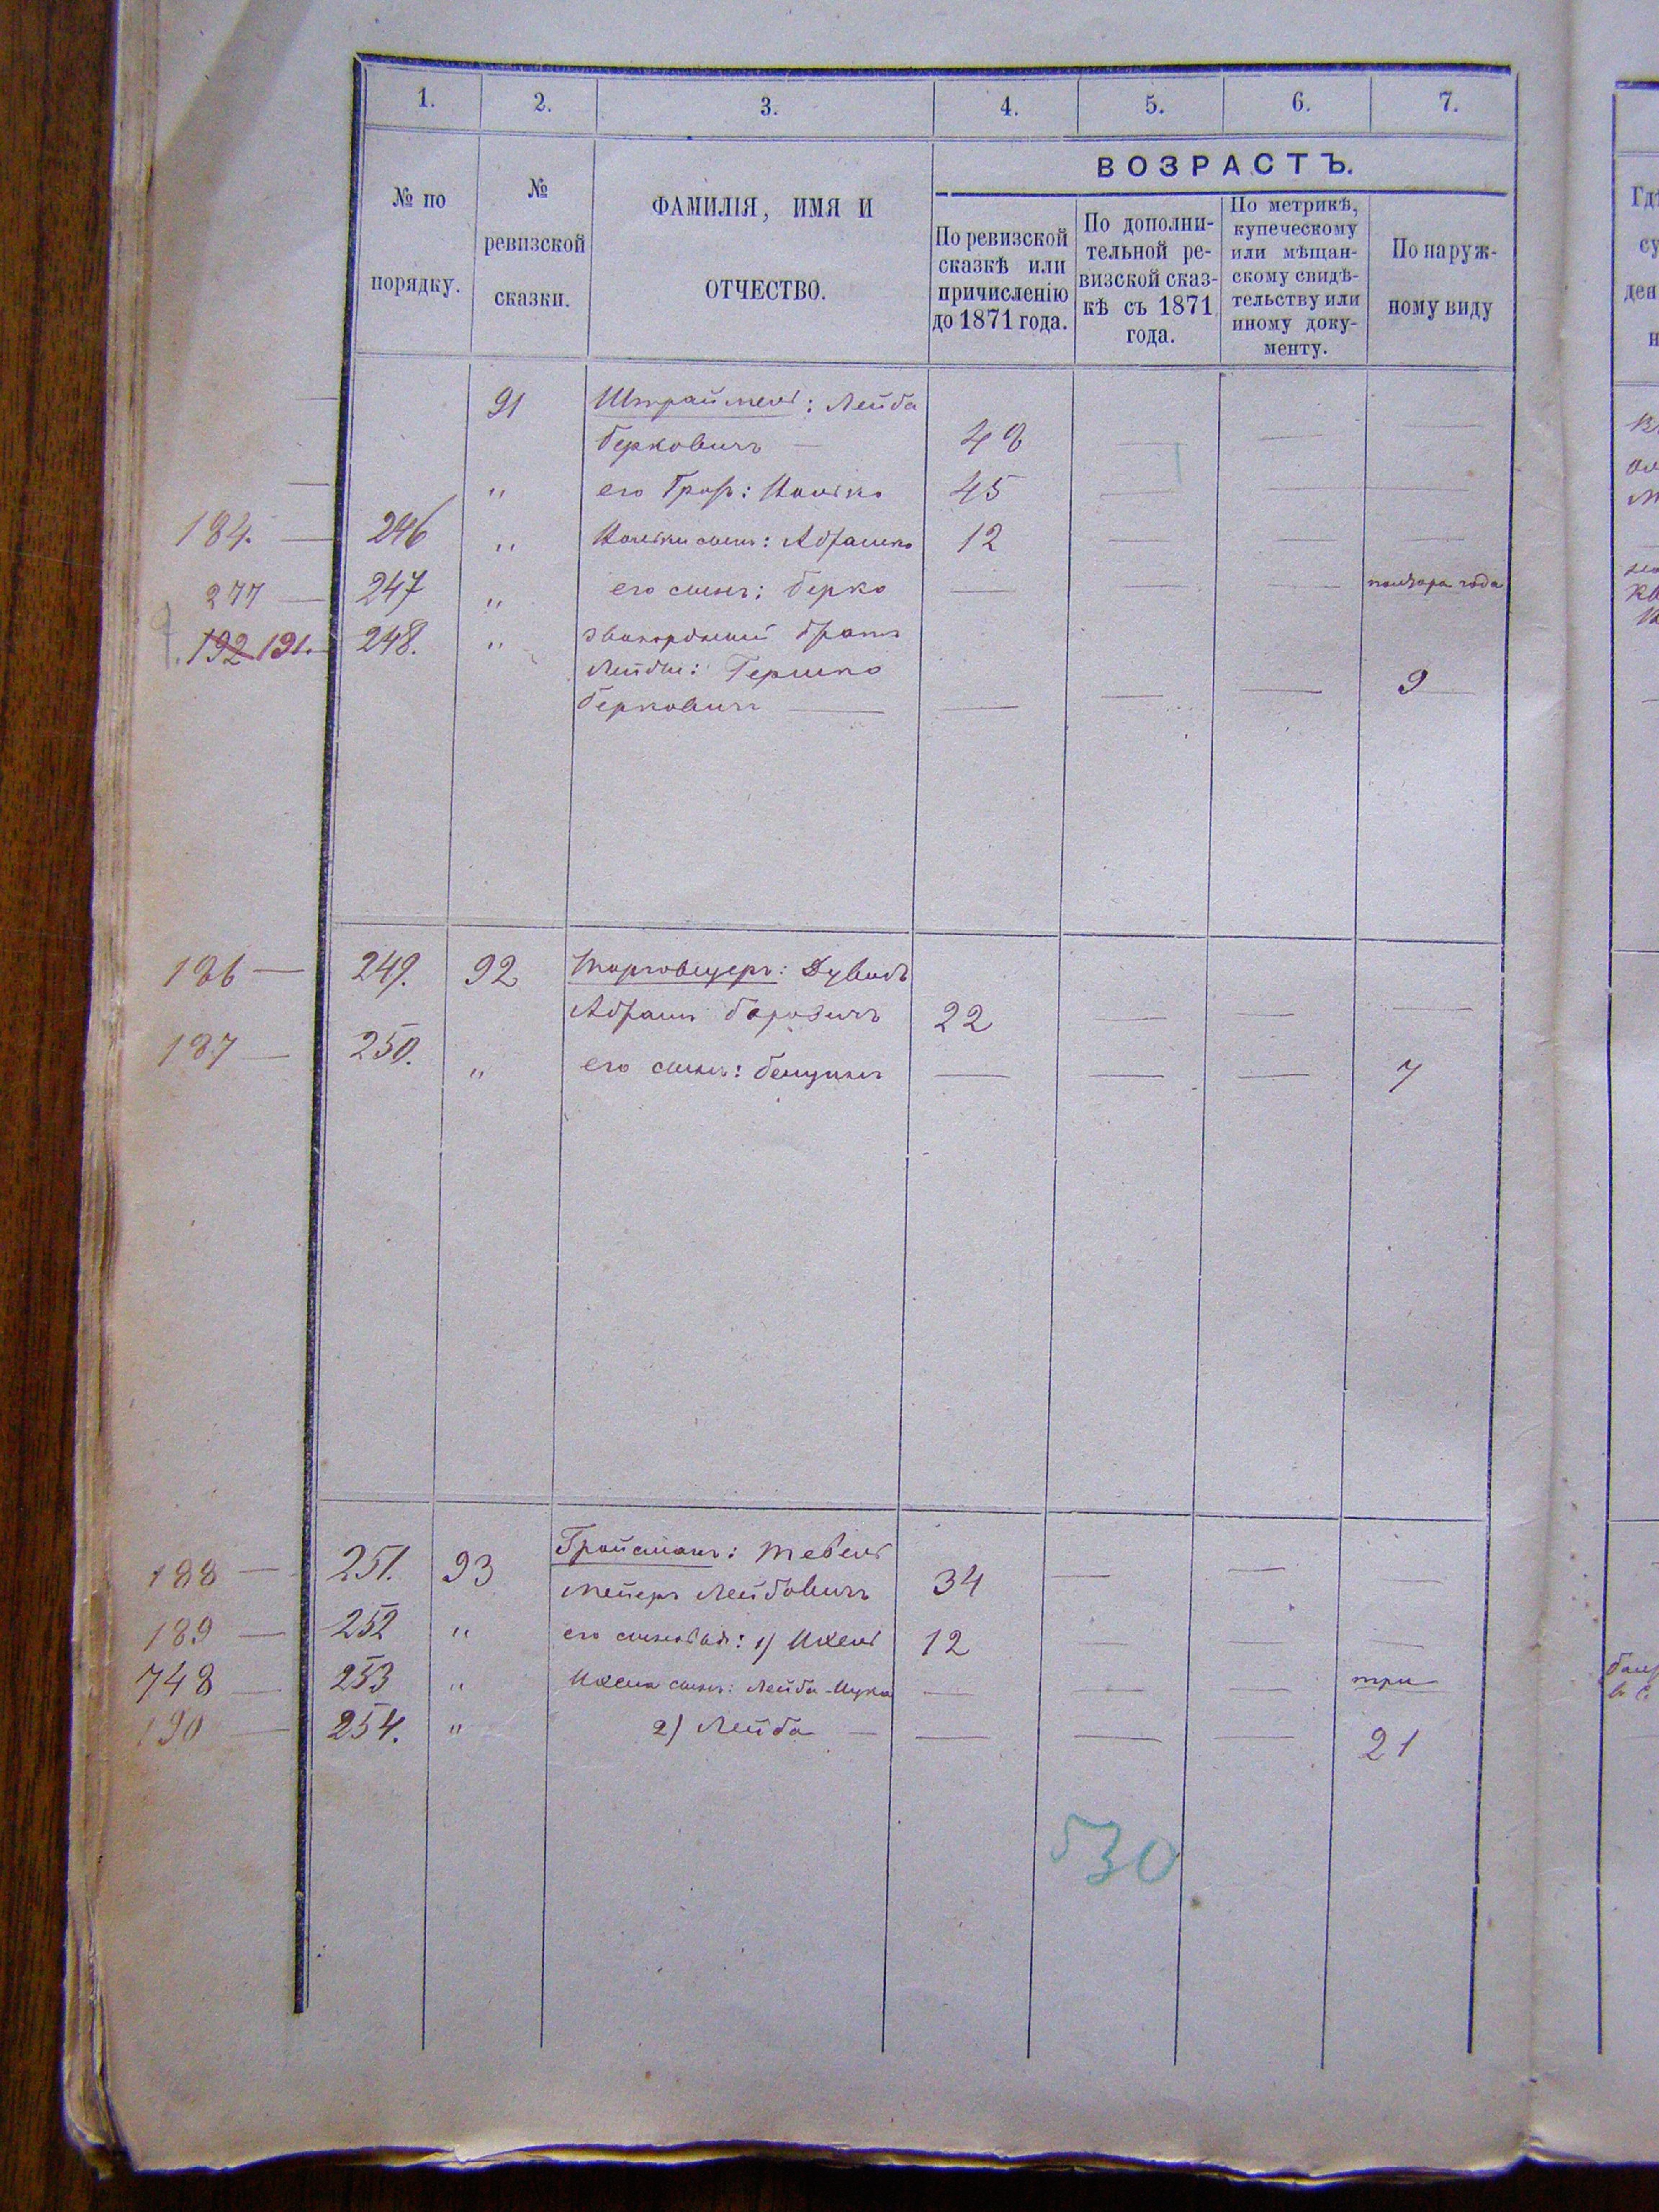 1. 2. 3. 4. 5. 6. 7.
ВОЗРАСТЪ.
№ по
порядку.
№
ревизской
сказки.
ФАМИЛІЯ, ИМЯ И
ОТЧЕСТВО.
По ревизской
сказкѣ или
причисленію
до 1871 года.
По дополни-
тельной ре-
визской сказ-
кѣ съ 1871
года.
По метрикѣ,
купеческому
или мѣщан-
скому свидѣ-
тельству или
иному доку-
менту.
По наруж-
ному виду
91 Лейба
Берковичъ — 48
" его 45
184. — 246 " сынъ: Абрашко 12
277 — 247 " его сынъ: Берко — полтора года
192 191. — 248. " двоюродный братъ
Лейбы: Гершко
Берковичъ — 9
186 — 249. 92 Дувидъ
Абрамъ 22
187 — 250. " его сынъ: Бенцинъ 7
188 — 251. 93 Гройсманъ: Тевель
Мейеръ Лейбовичъ 34
189 — 252 " его сыновья: 1) Ихель 12
748 — 253 " Ихеля сынъ: Лейба-Ицко — три
190 — 254. " 2) Лейба — 21
530